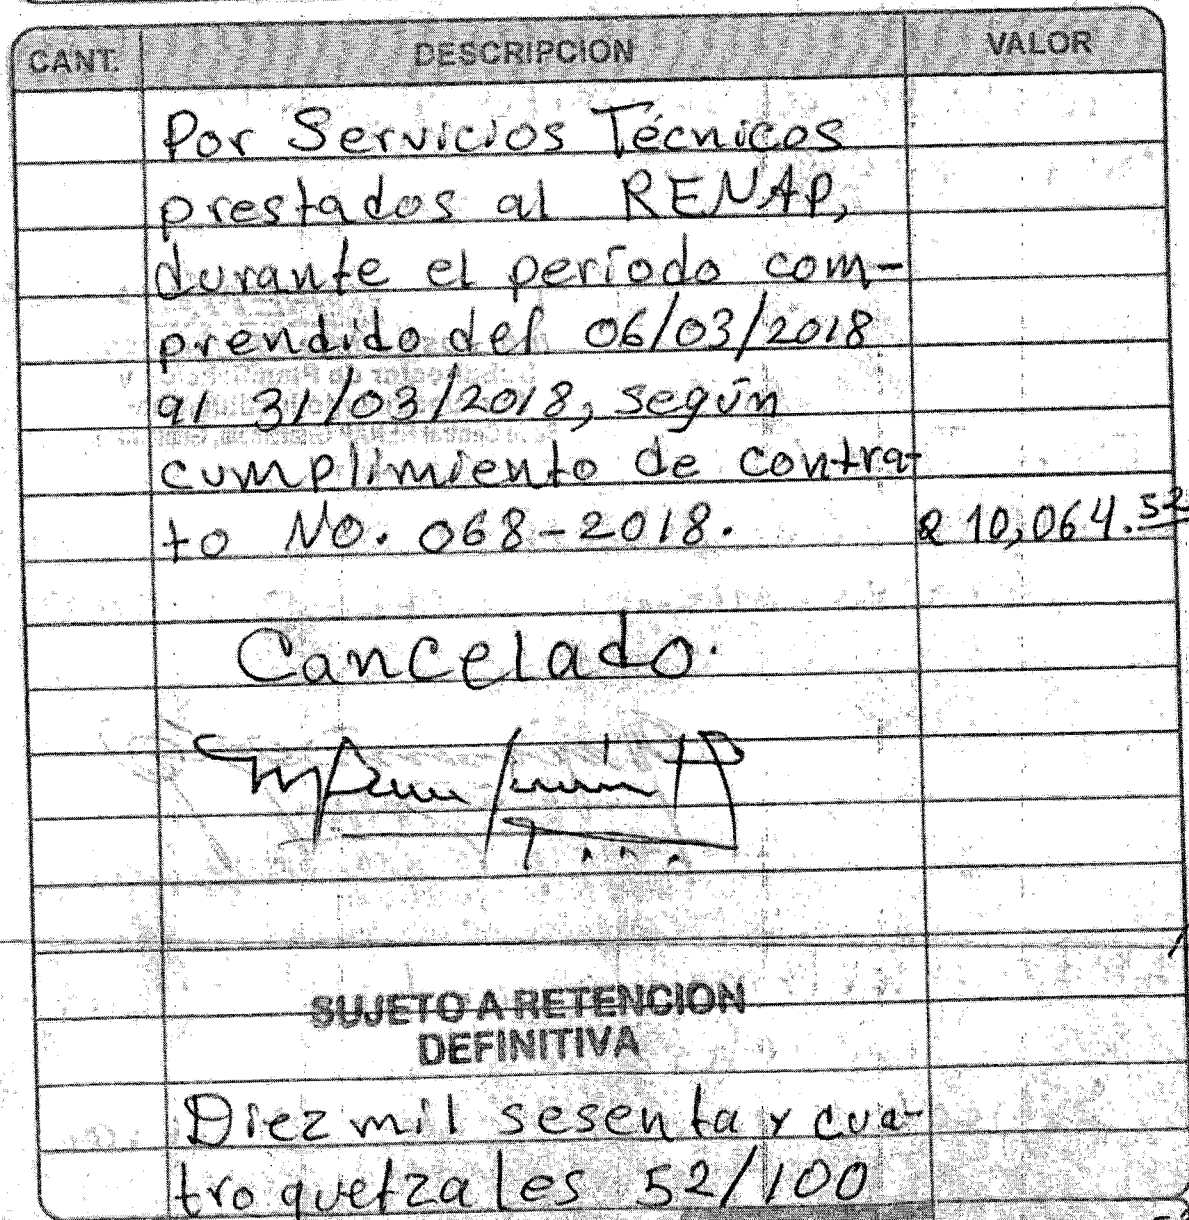 CANT. DESCRIPCION VALOR
Por Servicios Técnicos
prestados al RENAP,
durante el período com-
prendido del 06/03/2018
al 31/03/2018, según
cumplimiento de contra-
to No. 068-2018. Q 10,064.52
Cancelado.
SUJETO A RETENCION
DEFINITIVA
Diez mil sesenta y cua-
tro quetzales 52/100